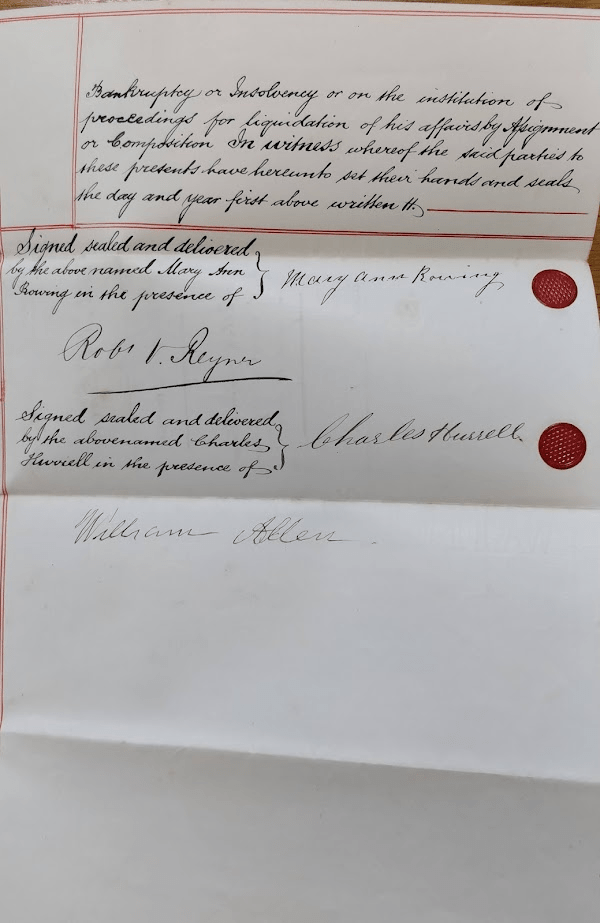 Bankruptcy or Insolvency or on the institution of
proceedings for liquidation of his affairs by Assignment
or Composition In witness whereof the said parties to
these presents have hereunto set their hands and seals
the day and year first above written
Signed sealed and delivered
by the above named Mary Ann
Rowing in the presence of
Mary Ann Rowing
Robt V. Reyner
Signed sealed and delivered
by the abovenamed Charles
Hurrell in the presence of
Charles Hurrell
William Allen